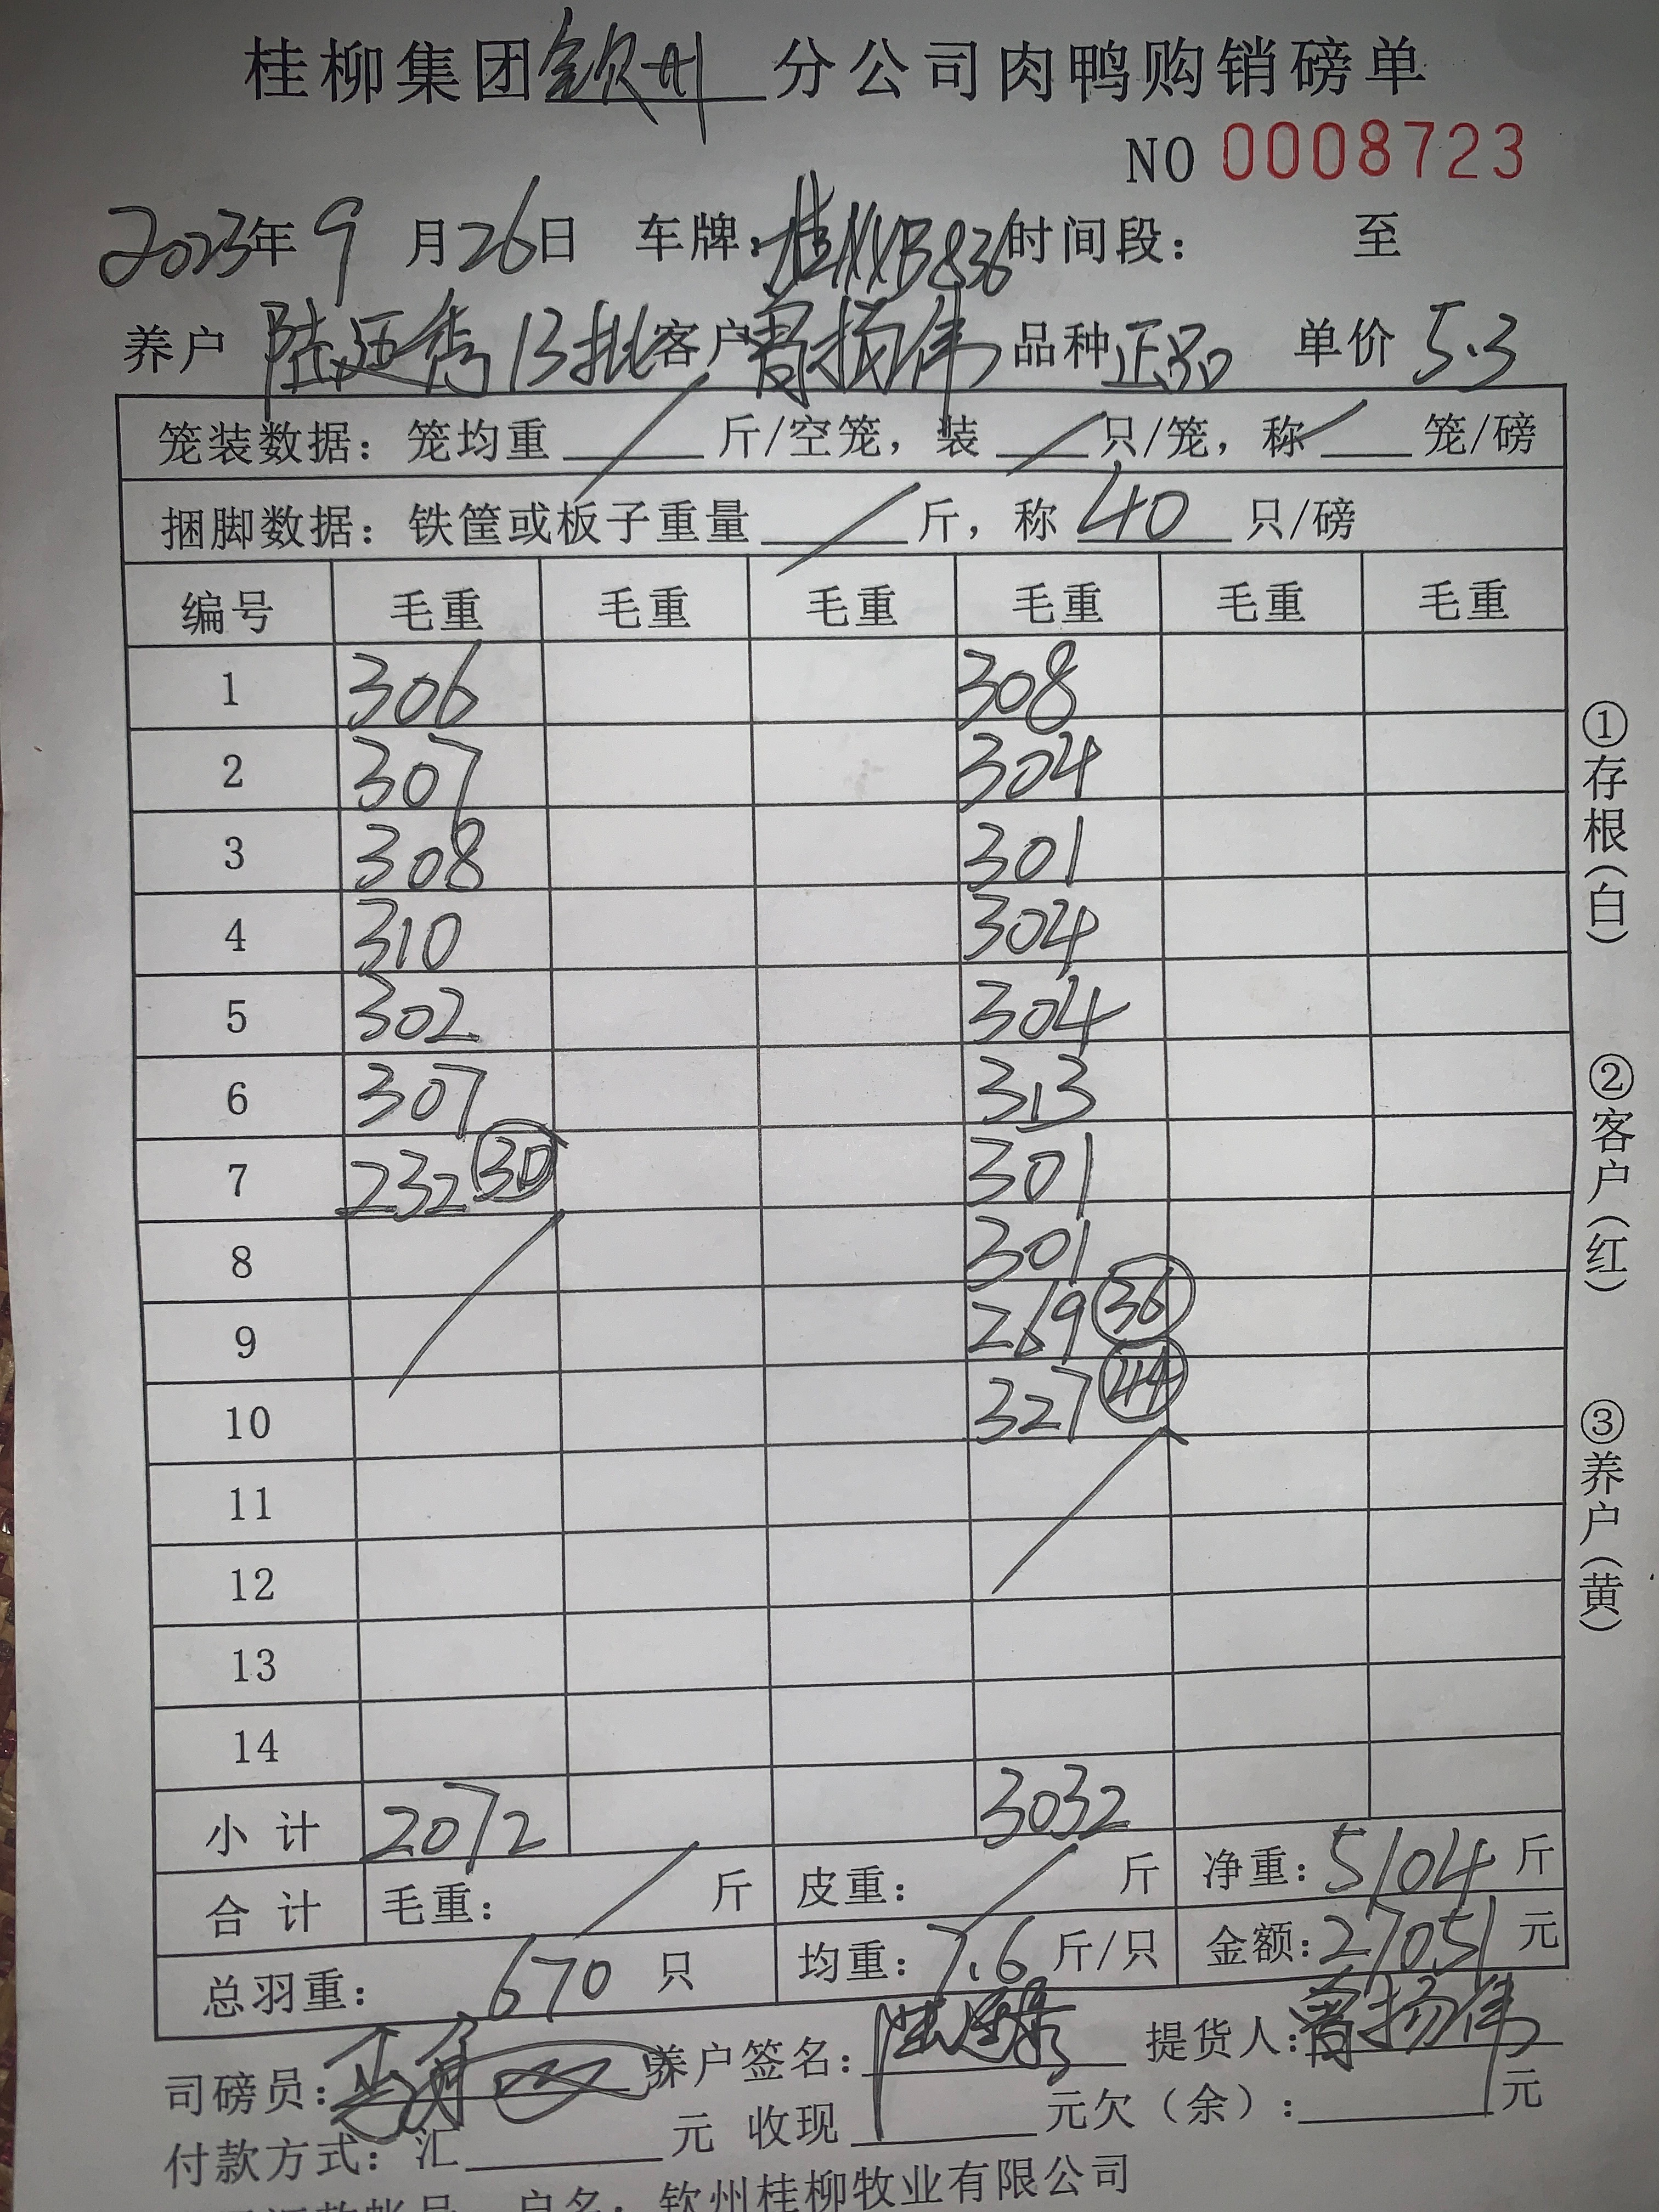 桂柳集团钦州分公司肉鸭购销磅单
NO 0008723
2023年9月26日 车牌:桂 时间段: 至
养户 陆廷秀13批 客户 曾扬伟 品种 正品 单价 5.3
笼装数据: 笼均重 / 斤/空笼, 装 / 只/笼, 称 / 笼/磅
捆脚数据: 铁筐或板子重量 / 斤, 称 40 只/磅
编号 毛重 毛重 毛重 毛重 毛重 毛重
1 306 308
2 307 304
3 308 301
4 310 304
5 302 304
6 307 313
7 232 ㉚ 301
8 301
9 269 ㊱
10 327 ㊹
11
12
13
14
小计 2072 3032
合计 毛重: / 斤 皮重: / 斤 净重: 5104 斤
总羽重: 670 只 均重: 7.6 斤/只 金额: 27051 元
司磅员: 养户签名: 提货人: 曾扬伟
付款方式: 汇 元 收现 元欠(余): 元
户名: 钦州桂柳牧业有限公司
①存根(白)
②客户(红)
③养户(黄)